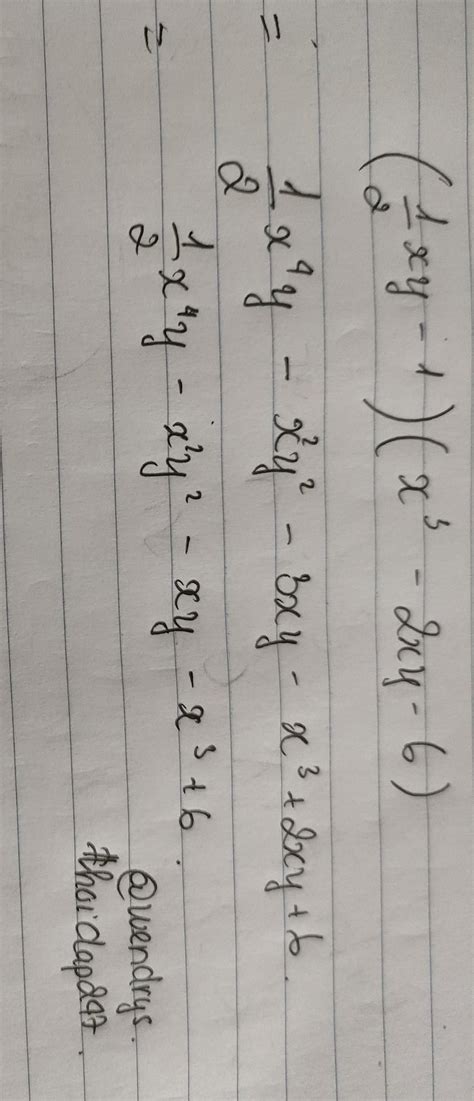 (1/2 xy - 1)(x³ - 2xy - 6)
= 1/2 x⁴y - x²y² - 3xy - x³ + 2xy + 6.
= 1/2 x⁴y - x²y² - xy - x³ + 6.
@wendrys.
#hoidap247.